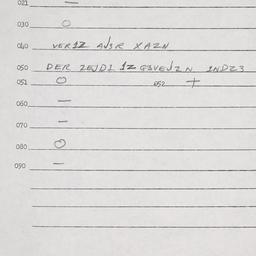 021 —
030 O
040 VER1Z AJSR XAZN
050 DER ZEJD1 1Z G3VEJZN 1NDZ3
051 O 052 +
060 —
070 —
080 O
090 —